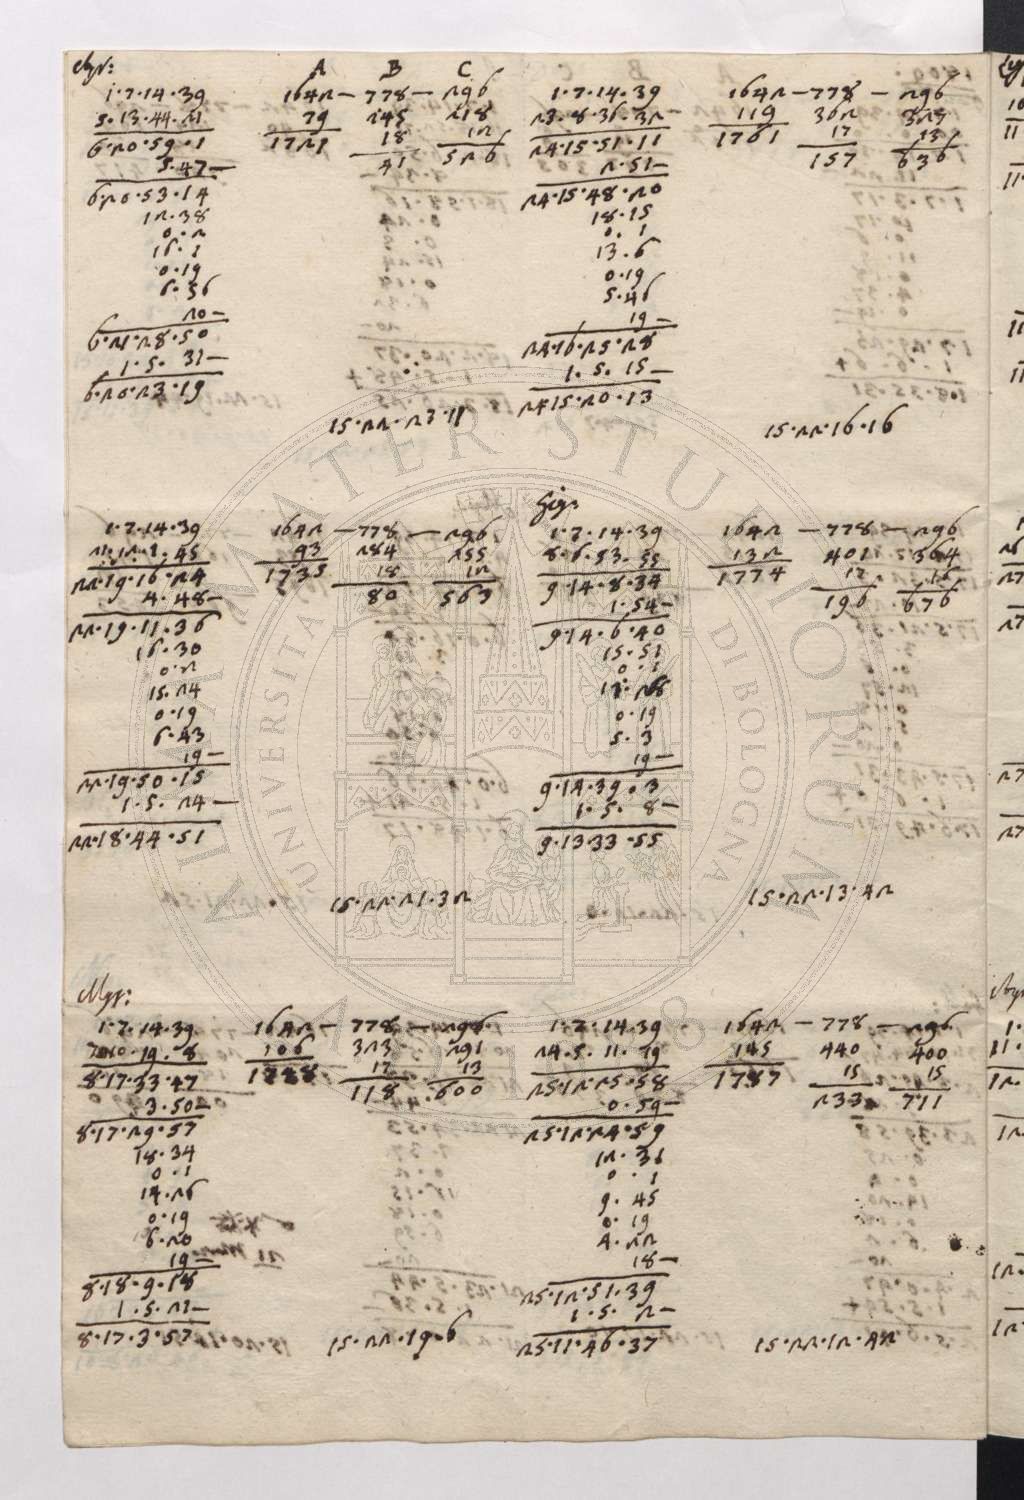 Apr:
A B C
1.7.14.39 1642 — 778 — 296
5.13.44.22 79 245 218
6.20.59.1 1721 18 12
5.47— 41 526
6.20.53.14
12.38
0.2
16.1
0.19
6.36
20—
6.21.28.50
1.5.31—
6.20.23.19
15.22.23.11
1.7.14.39 1642 — 778 — 296
23.8.36.32 119 362 327
24.15.51.11 1761 17 13
2.51— 157 636
24.15.48.20
18.15
0.1
13.6
0.19
5.46
19—
24.16.25.28
1.5.15—
24.15.20.13
15.22.16.16
1.7.14.39 1642 — 778 — 296
21.12.1.45 93 284 255
22.19.16.24 1735 18 12
4.48— 80 563
22.19.11.36
16.30
0.2
15.24
0.19
6.43
19—
22.19.50.15
1.5.24—
22.18.44.51
15.22.21.32
1.7.14.39 1642 — 778 — 296
8.6.53.55 132 401 364
9.14.8.34 1774 17 16
1.54— 196 676
9.14.6.40
15.51
0.1
11.28
0.19
5.3
19—
9.14.39.3
1.5.8—
9.13.33.55
15.22.13.42
1.7.14.39 1642 — 778 — 296
7.10.19.8 106 323 291
8.17.33.47 1748 17 13
3.50— 118 600
8.17.29.57
18.34
0.1
14.26
0.19
6.20
19—
8.18.9.18
1.5.21—
8.17.3.57
15.22.19.6
1.7.14.39 1642 — 778 — 296
24.5.11.19 145 440 400
25.12.25.58 1787 15 15
0.59— 233 711
25.12.24.59
12.31
0.1
9.45
0.19
4.22
18—
25.12.51.39
1.5.2—
25.11.46.37
15.22.12.42
ALMA MATER STUDIORUM
UNIVERSITÀ DI BOLOGNA